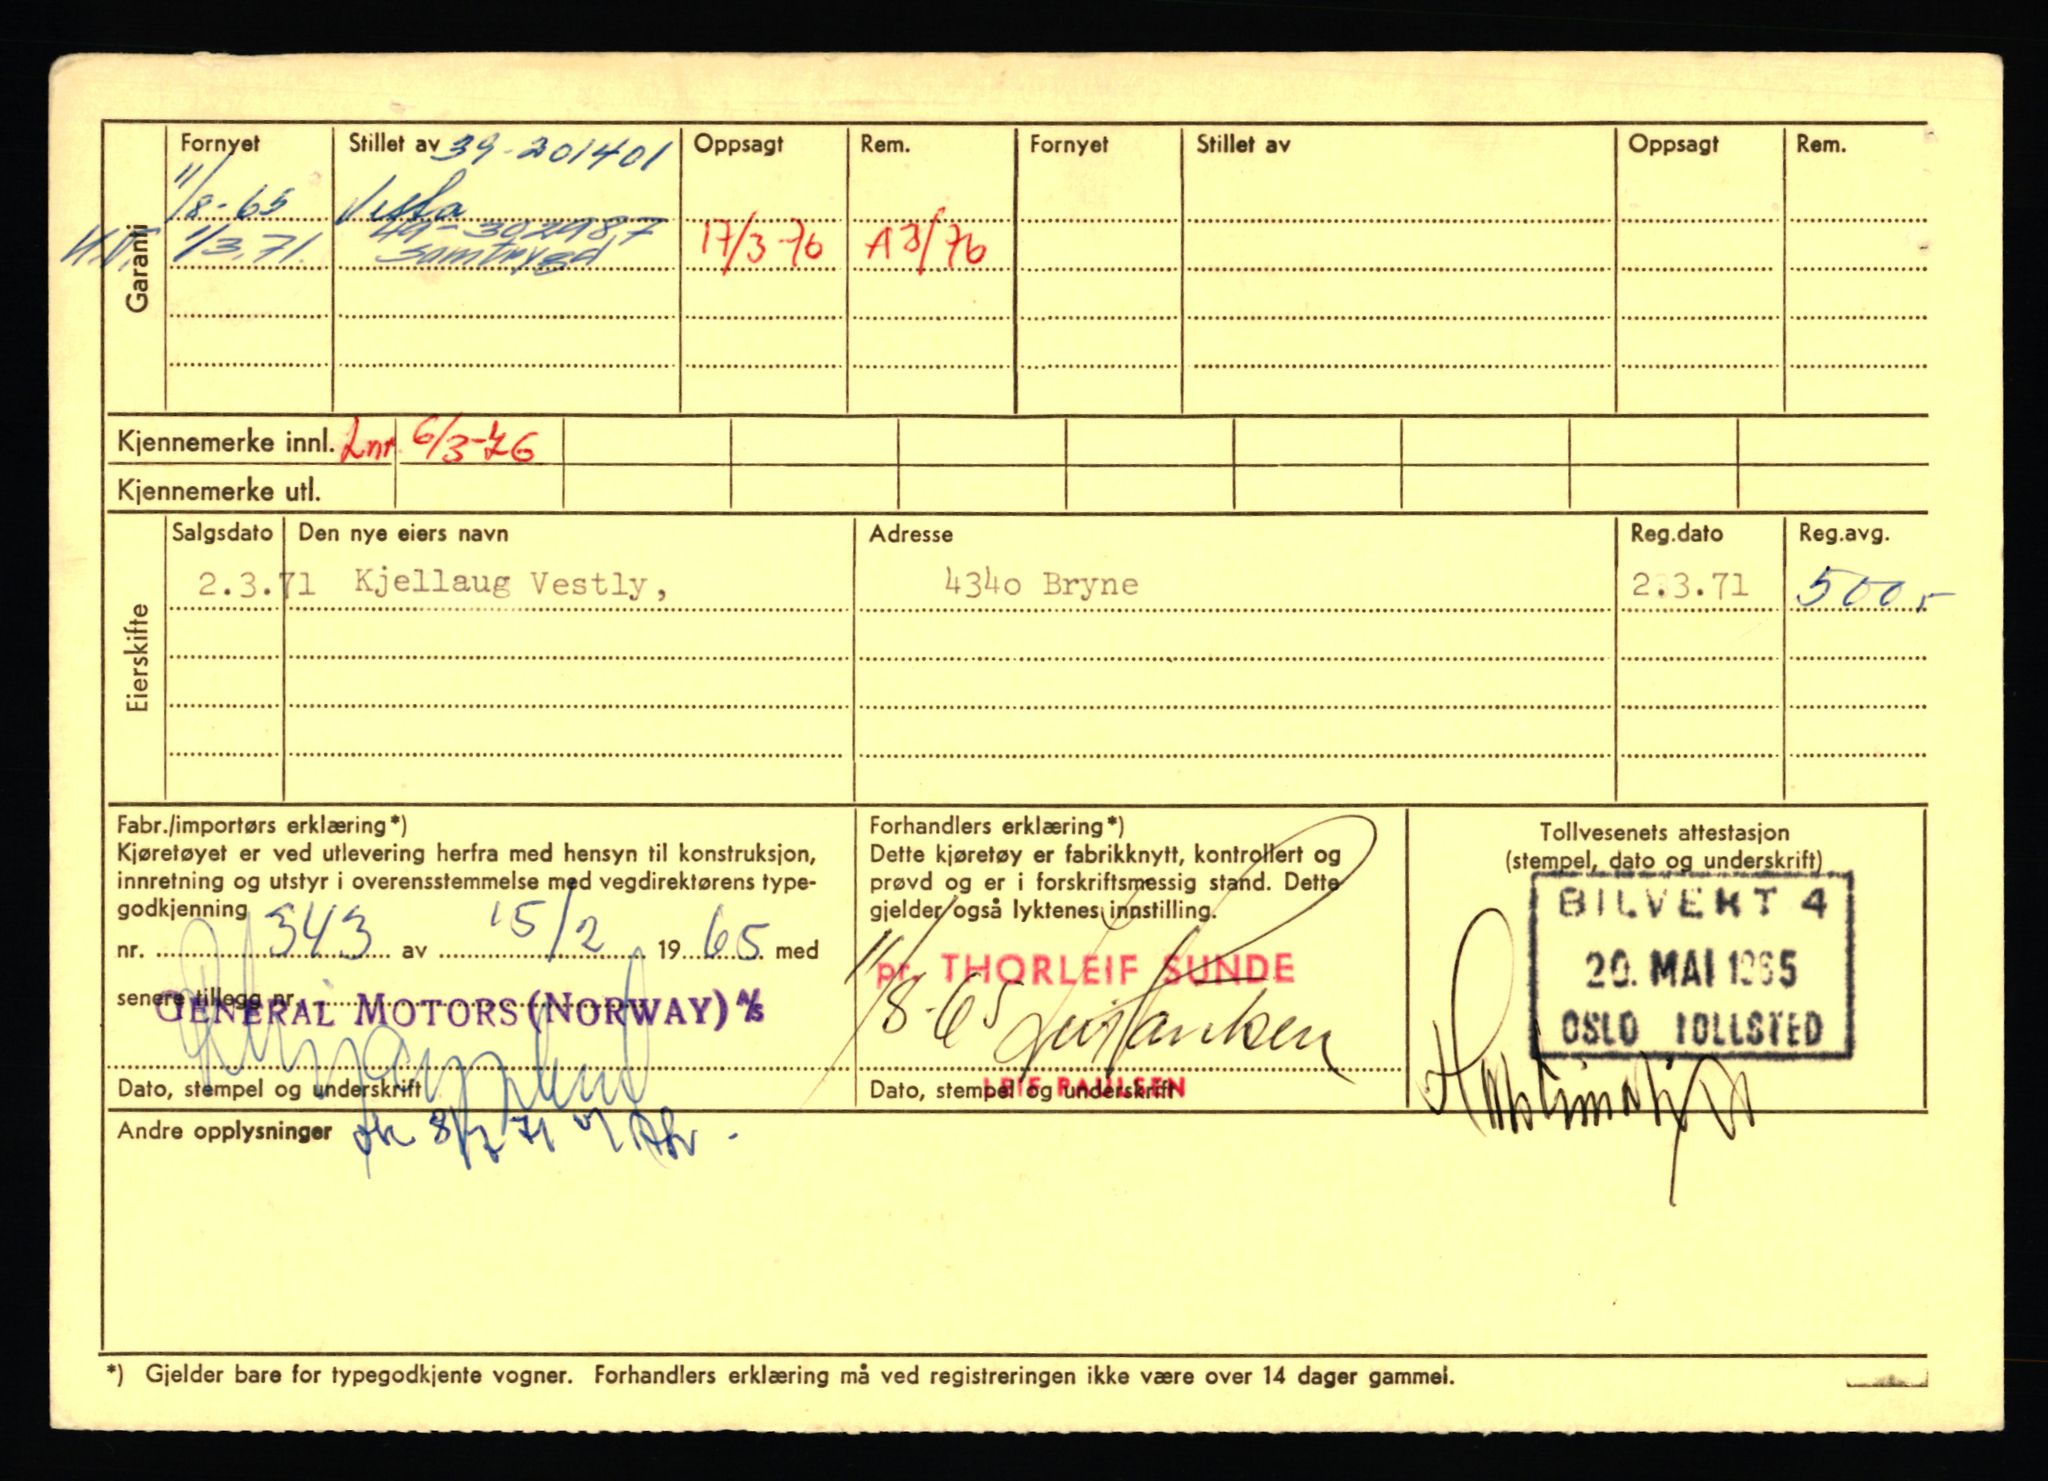 Garanti
Fornyet Stillet av 39-201401 Oppsagt Rem. Fornyet Stillet av Oppsagt Rem.
11/8-65 Vesta
1/3.71. 49-302987 17/3-76 A 3/76
Samtrygd
Kjennemerke innl. Lnr 6/3-76
Kjennemerke utl.
Eierskifte
Salgsdato Den nye eiers navn Adresse Reg.dato Reg.avg.
2.3.71 Kjellaug Vestly, 4340 Bryne 2.3.71 500,-
Fabr./importørs erklæring*)
Kjøretøyet er ved utlevering herfra med hensyn til konstruksjon,
innretning og utstyr i overensstemmelse med vegdirektørens type-
godkjenning
nr. 343 av 15/2 1965 med
senere tillegg nr.
GENERAL MOTORS (NORWAY) A/S
Dato, stempel og underskrift
Forhandlers erklæring*)
Dette kjøretøy er fabrikknytt, kontrollert og
prøvd og er i forskriftsmessig stand. Dette
gjelder også lyktenes innstilling.
pr. THORLEIF SUNDE
11/8-65
LEIF PAULSEN
Dato, stempel og underskrift
Tollvesenets attestasjon
(stempel, dato og underskrift)
BILVERT 4
20. MAI 1965
OSLO TOLLSTED
Andre opplysninger
*) Gjelder bare for typegodkjente vogner. Forhandlers erklæring må ved registreringen ikke være over 14 dager gammel.